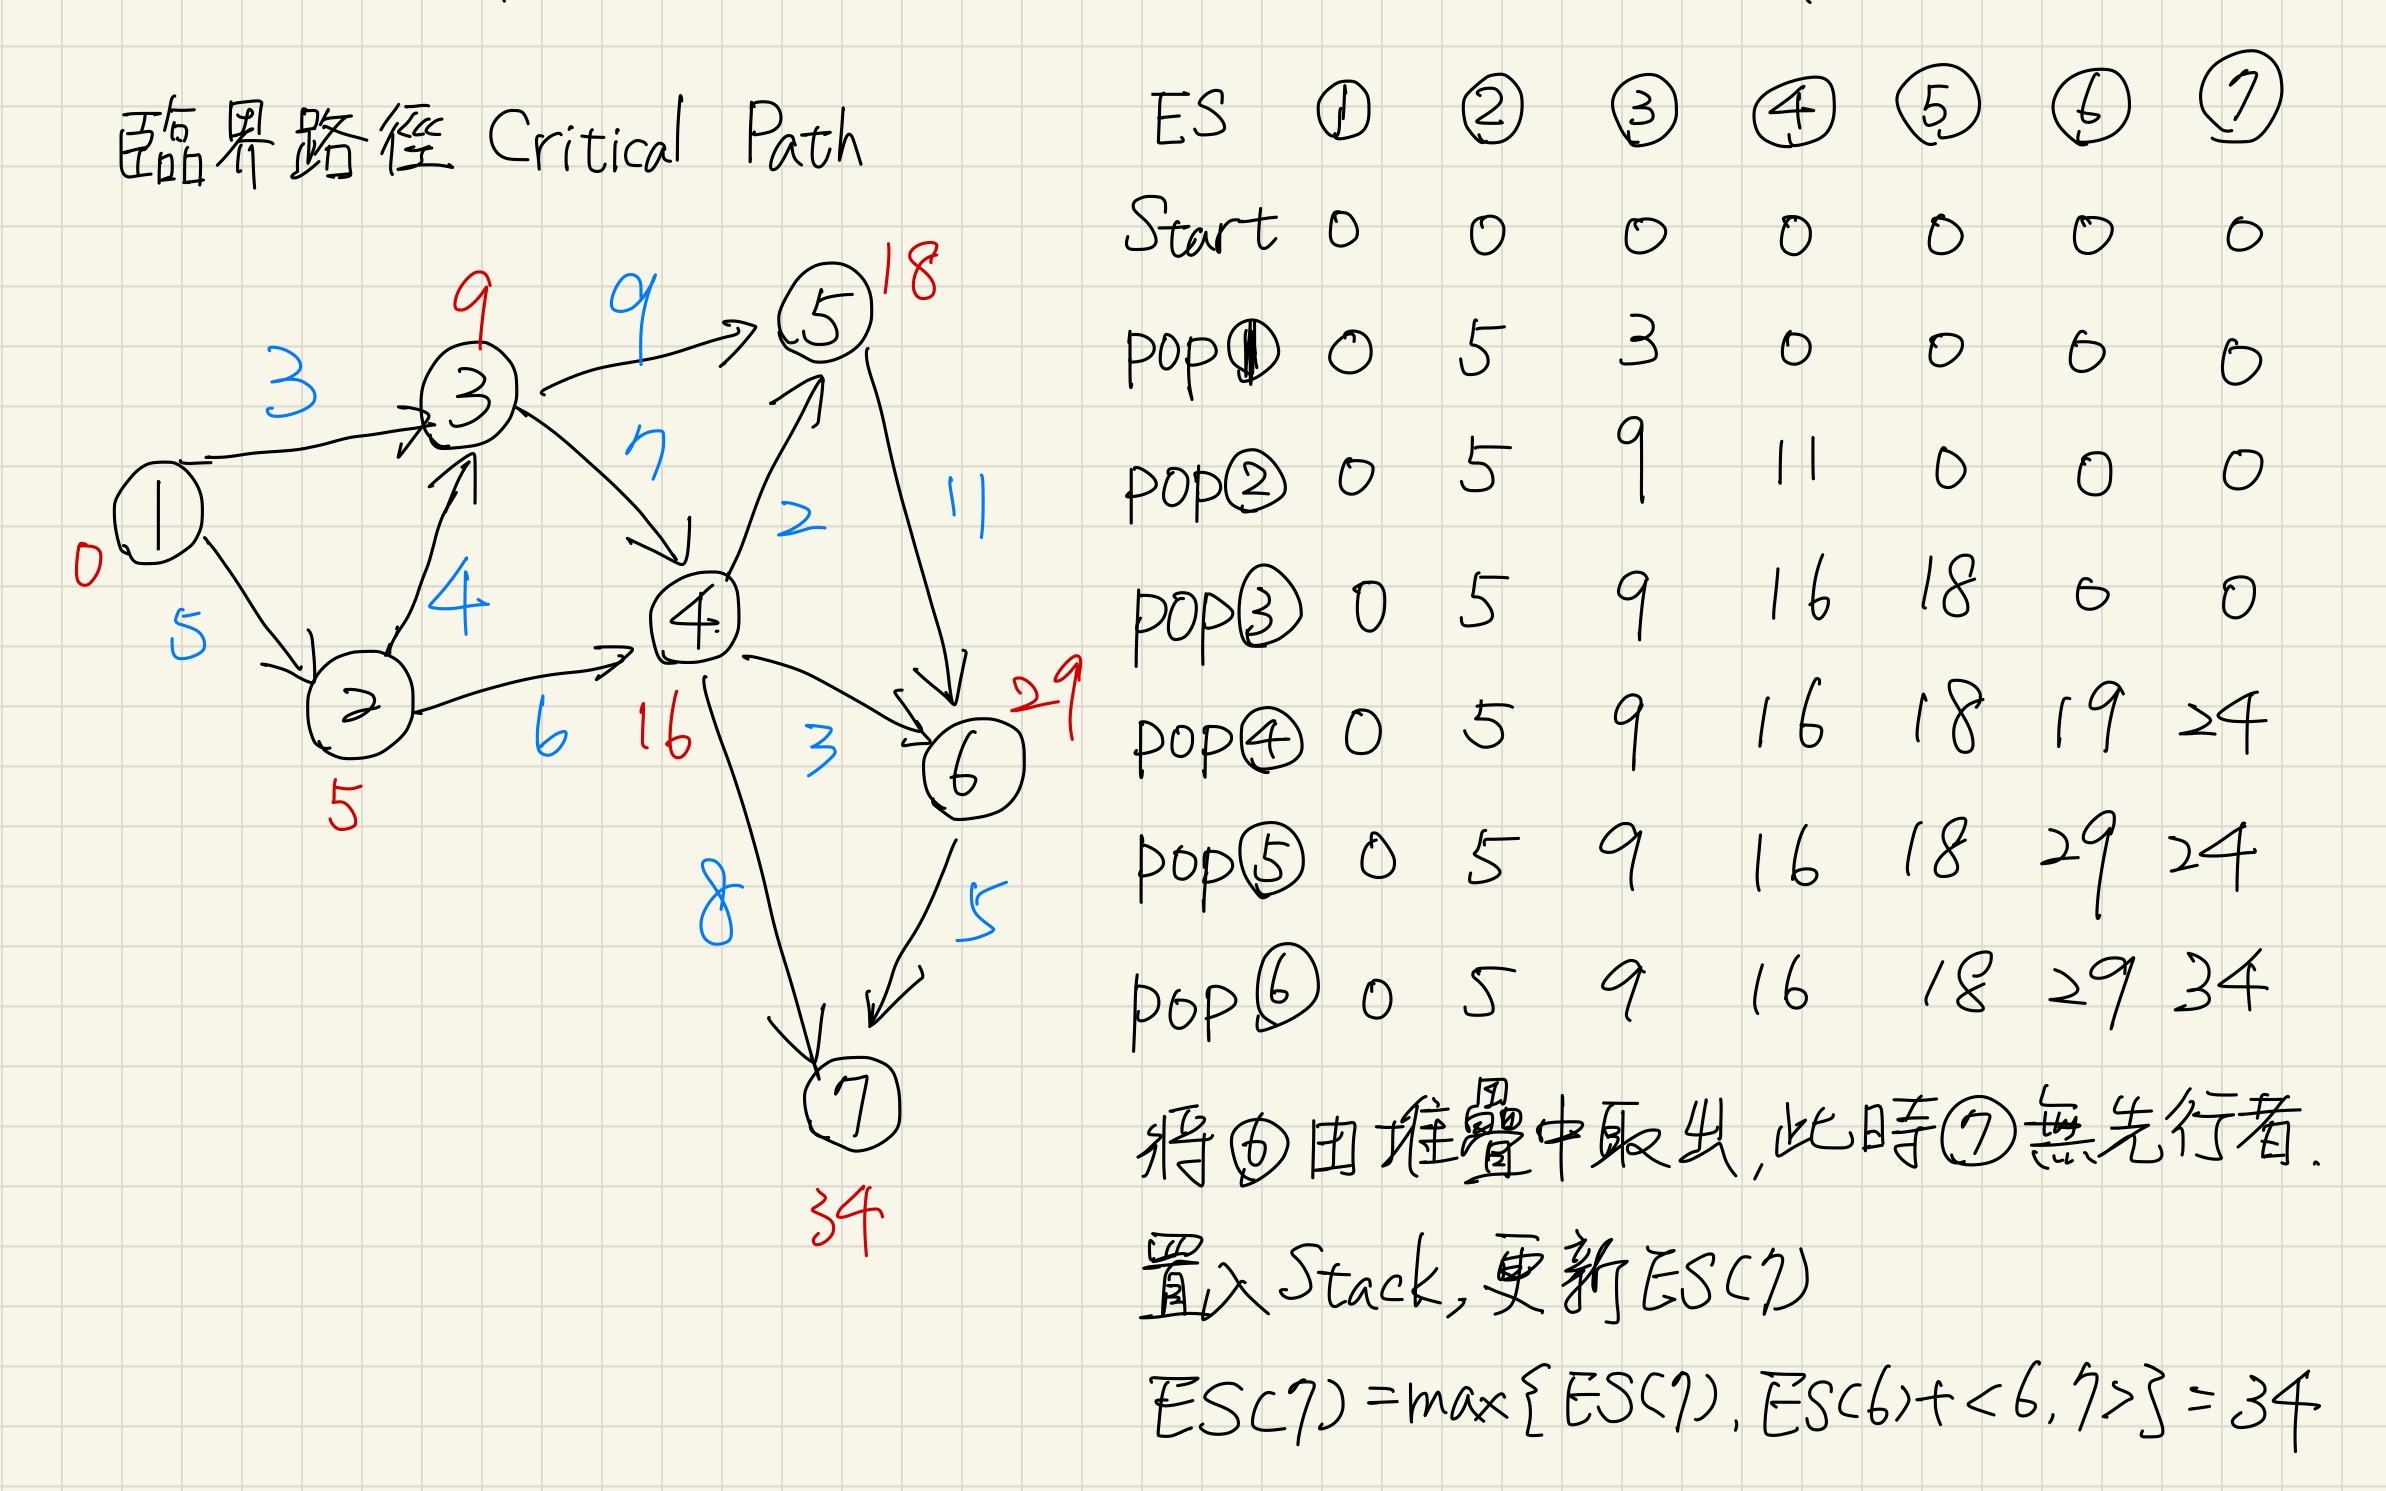 臨界路徑 Critical Path
9
18
9
5
3
3
7
2
11
1
0
5
4
4
2
6
16
3
29
6
5
8
5
7
34
ES ① ② ③ ④ ⑤ ⑥ ⑦
Start 0 0 0 0 0 0 0
pop① 0 5 3 0 0 0 0
pop② 0 5 9 11 0 0 0
pop③ 0 5 9 16 18 0 0
pop④ 0 5 9 16 18 19 24
pop⑤ 0 5 9 16 18 29 24
pop⑥ 0 5 9 16 18 29 34
將⑥由堆疊中取出,此時⑦無先行者.
置入Stack,更新ES(7)
ES(7)=max{ES(7),ES(6)+<6,7>}=34